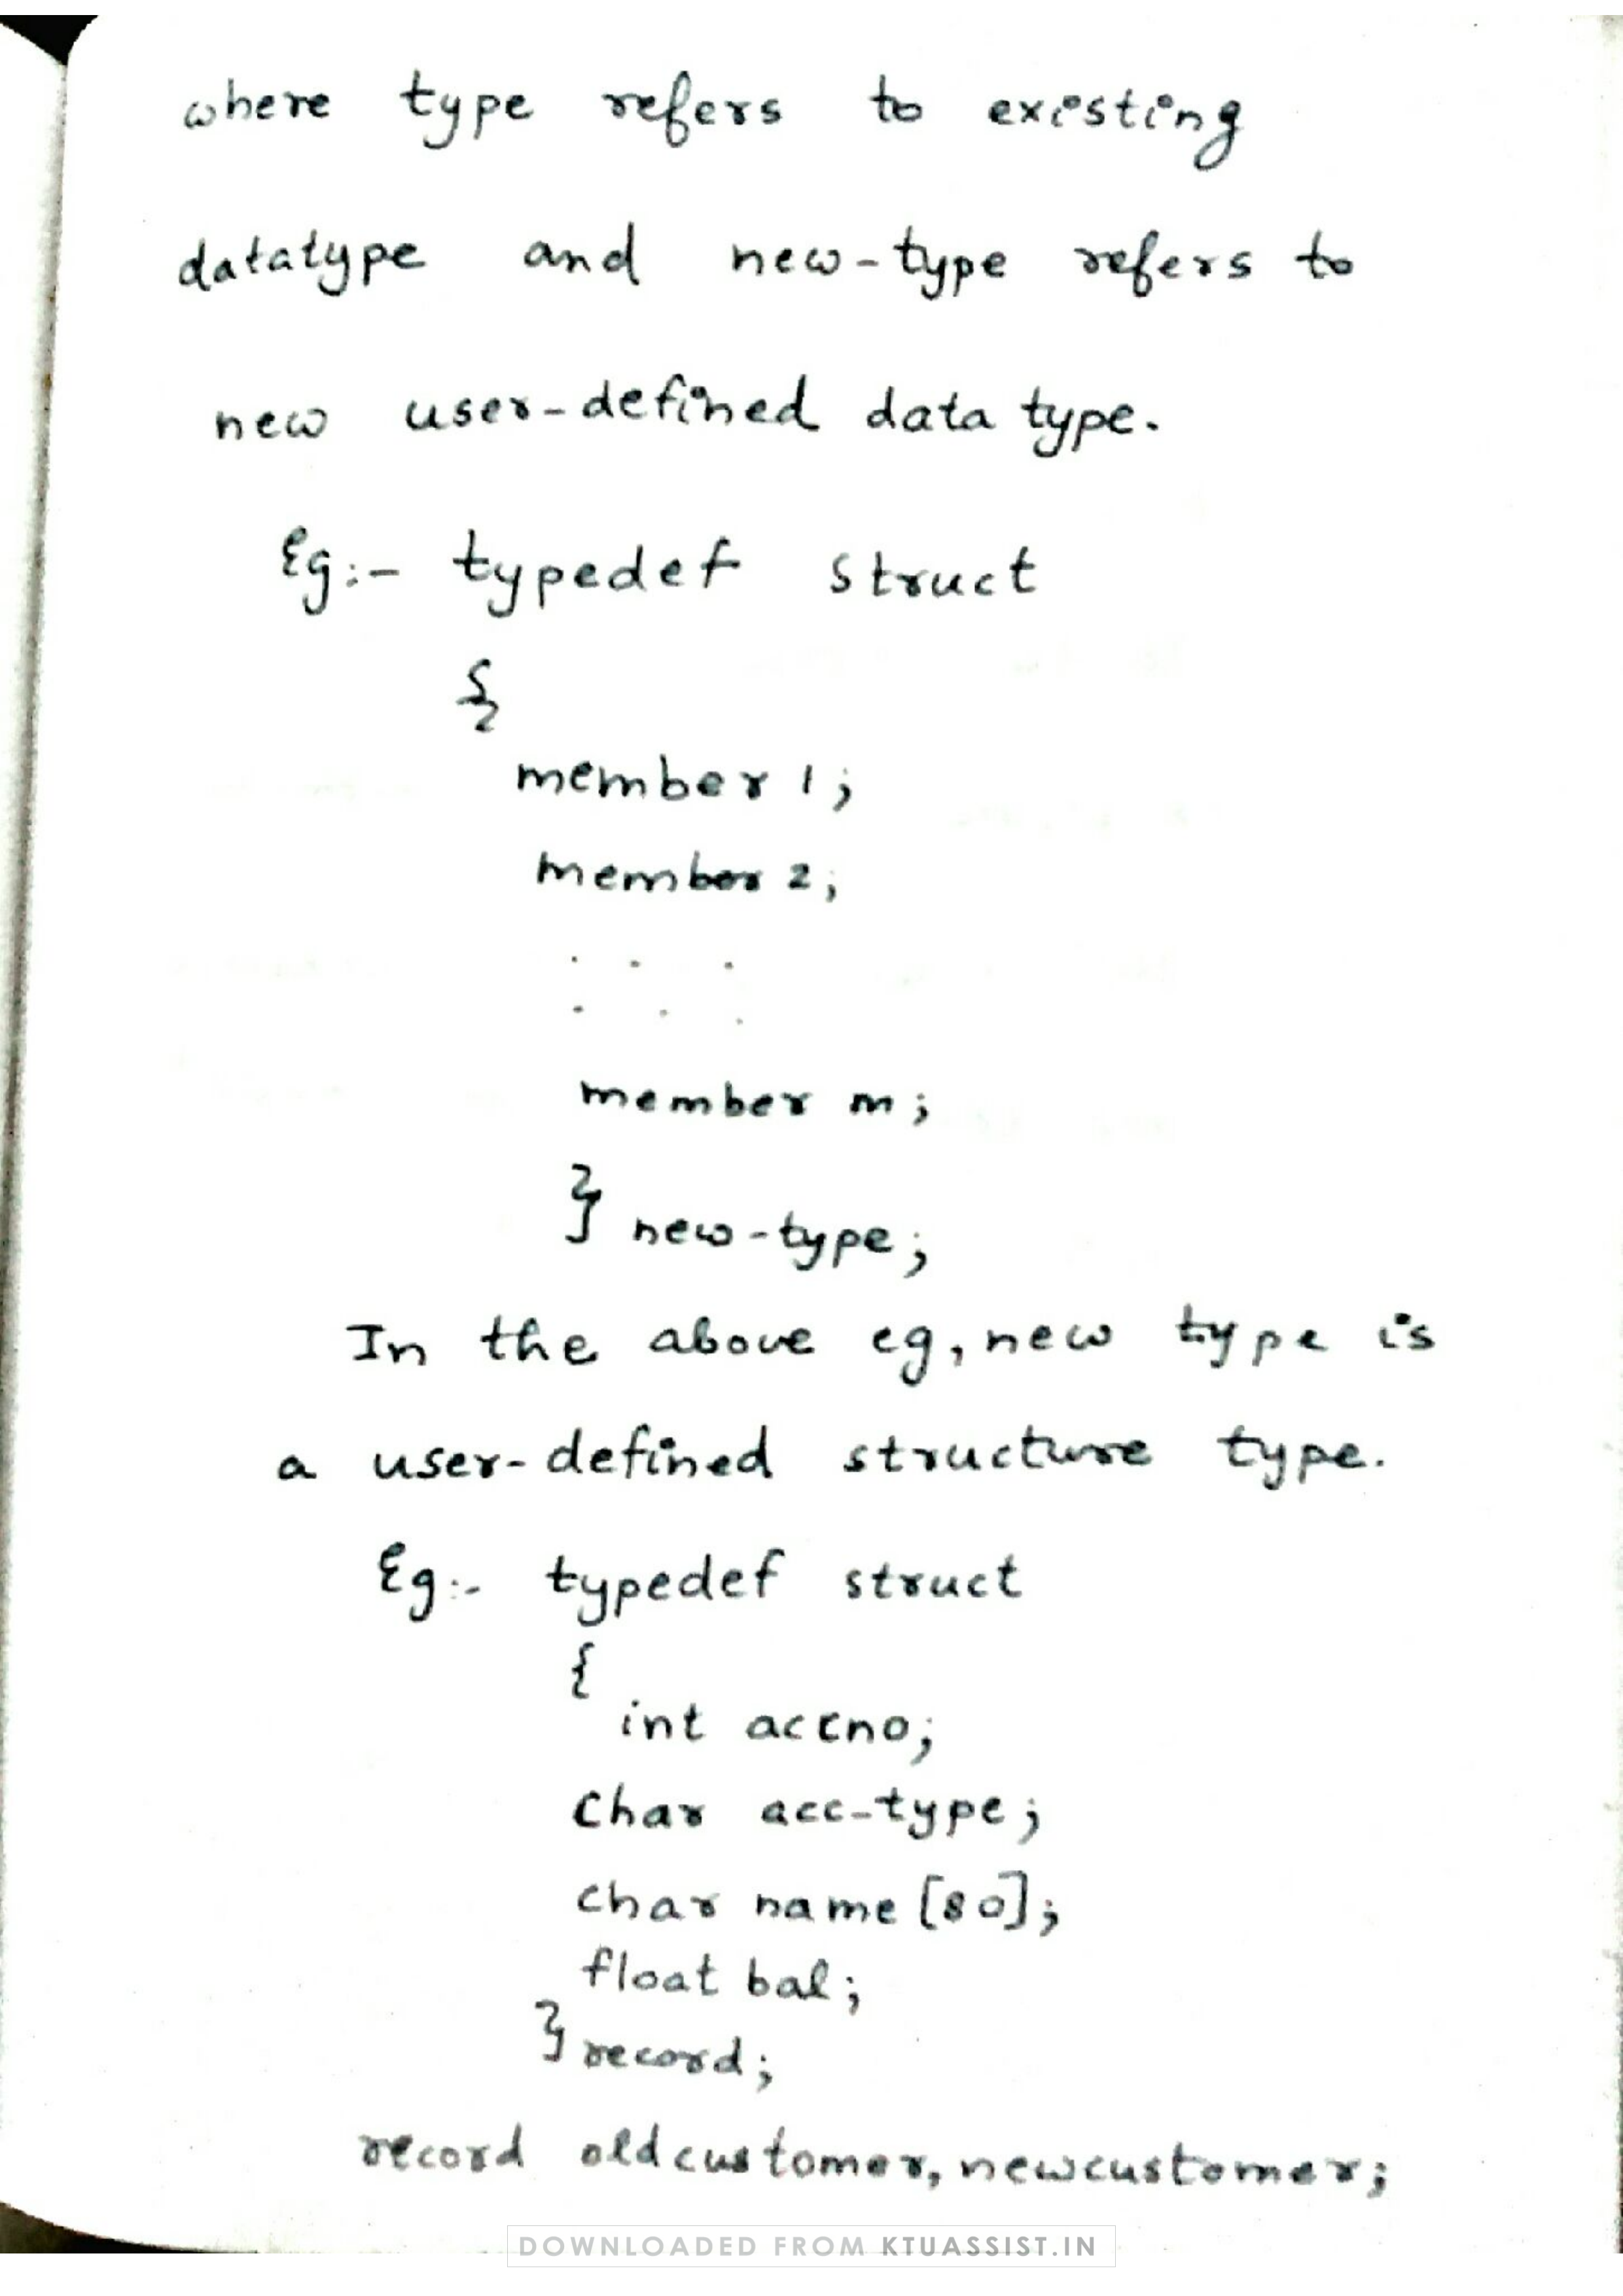 where type refers to existing
datatype and new-type refers to
new user-defined data type.
Eg:- typedef struct
{
member 1;
member 2;
. . .
. . .
member m;
} new-type;
In the above eg, new type is
a user-defined structure type.
Eg:- typedef struct
{
int accno;
char acc-type;
char name [80];
float bal;
} record;
record oldcustomer, newcustomer;
DOWNLOADED FROM KTUASSIST.IN